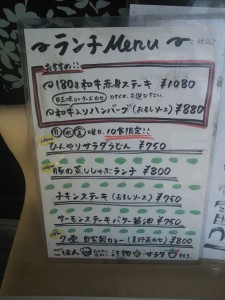 〜ランチMenu〜
おすすめ!!
180g 和牛赤身ステーキ ¥1080
和牛入りハンバーグ(おろしソース) ¥880
月 水 金 曜日、10食限定!!
ひんやりサラダうどん ¥750
豚の蒸ししゃぶランチ ¥800
チキンステーキ(おろしソース) ¥750
サーモンステーキバター醤油 ¥750
自家製カレー ¥800
ごはん 汁物 サラダ 付き